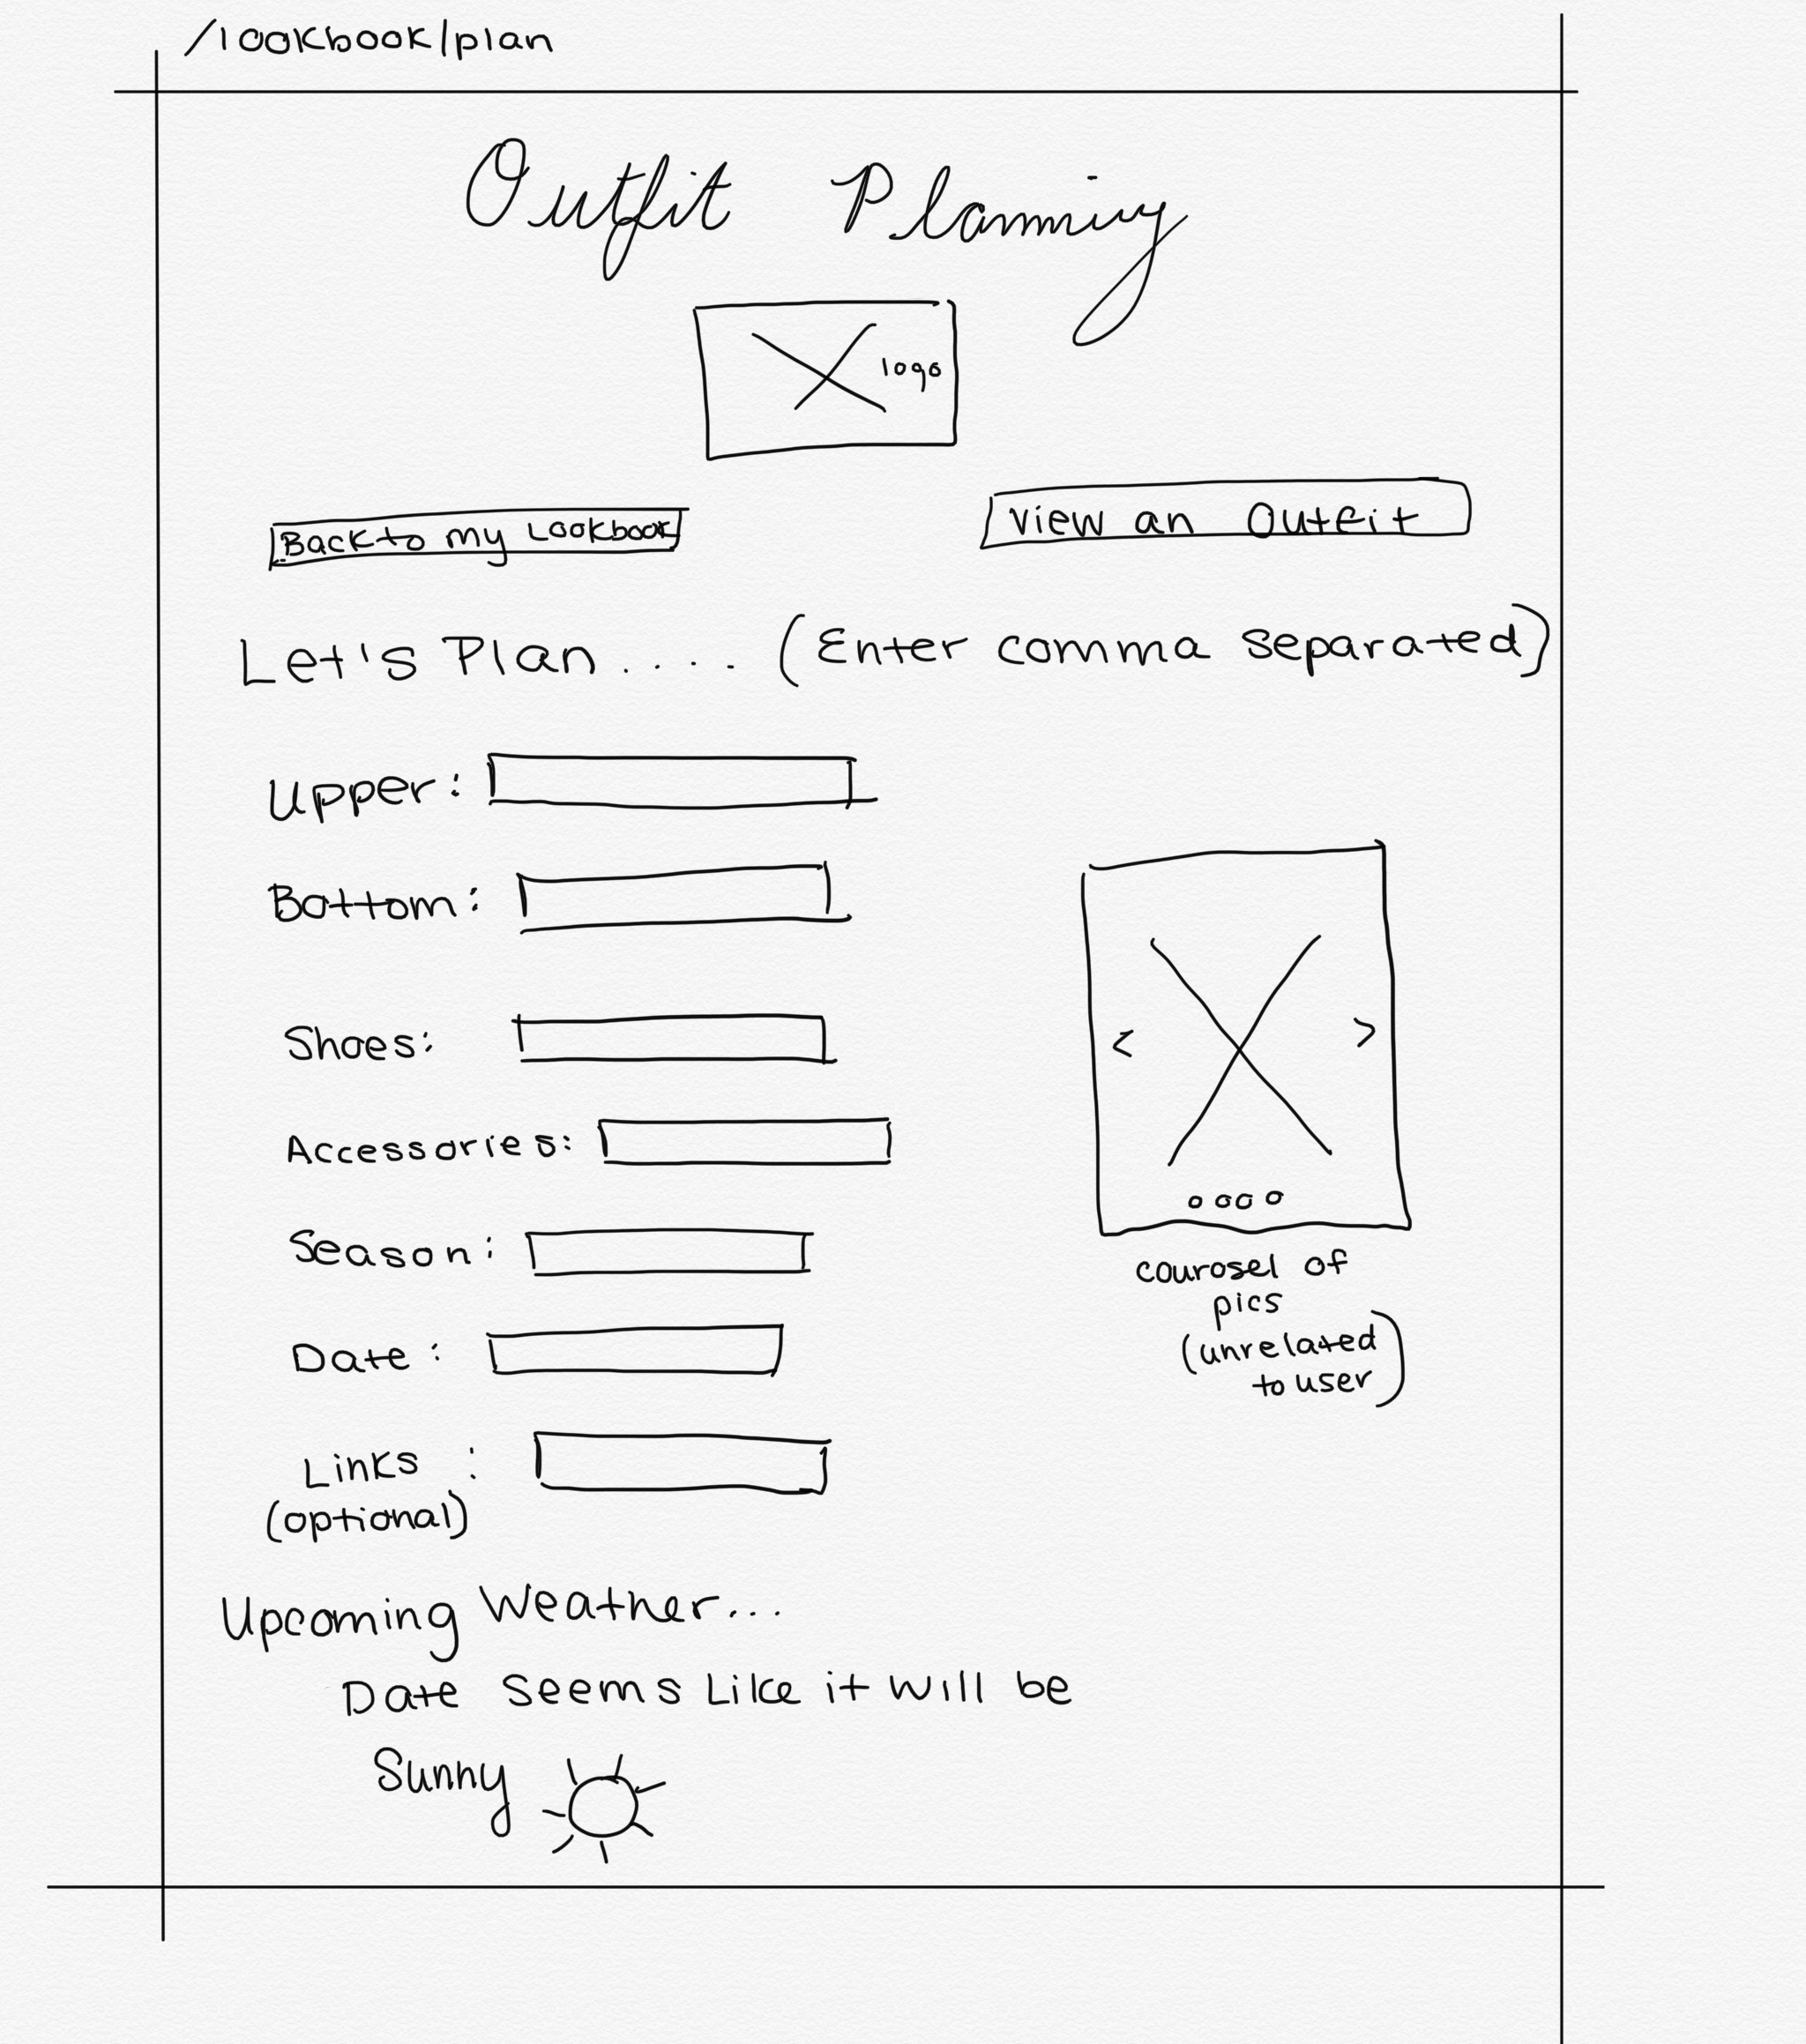 /lookbook/plan
Outfit Planning
logo
Back to my Lookbook
View an Outfit
Let's Plan.... (Enter comma separated)
Upper:
Bottom:
Shoes:
Accessories:
Season:
Date:
Links :
(optional)
< >
courosel of
pics
(unrelated
to user)
Upcoming Weather...
Date seems like it will be
Sunny